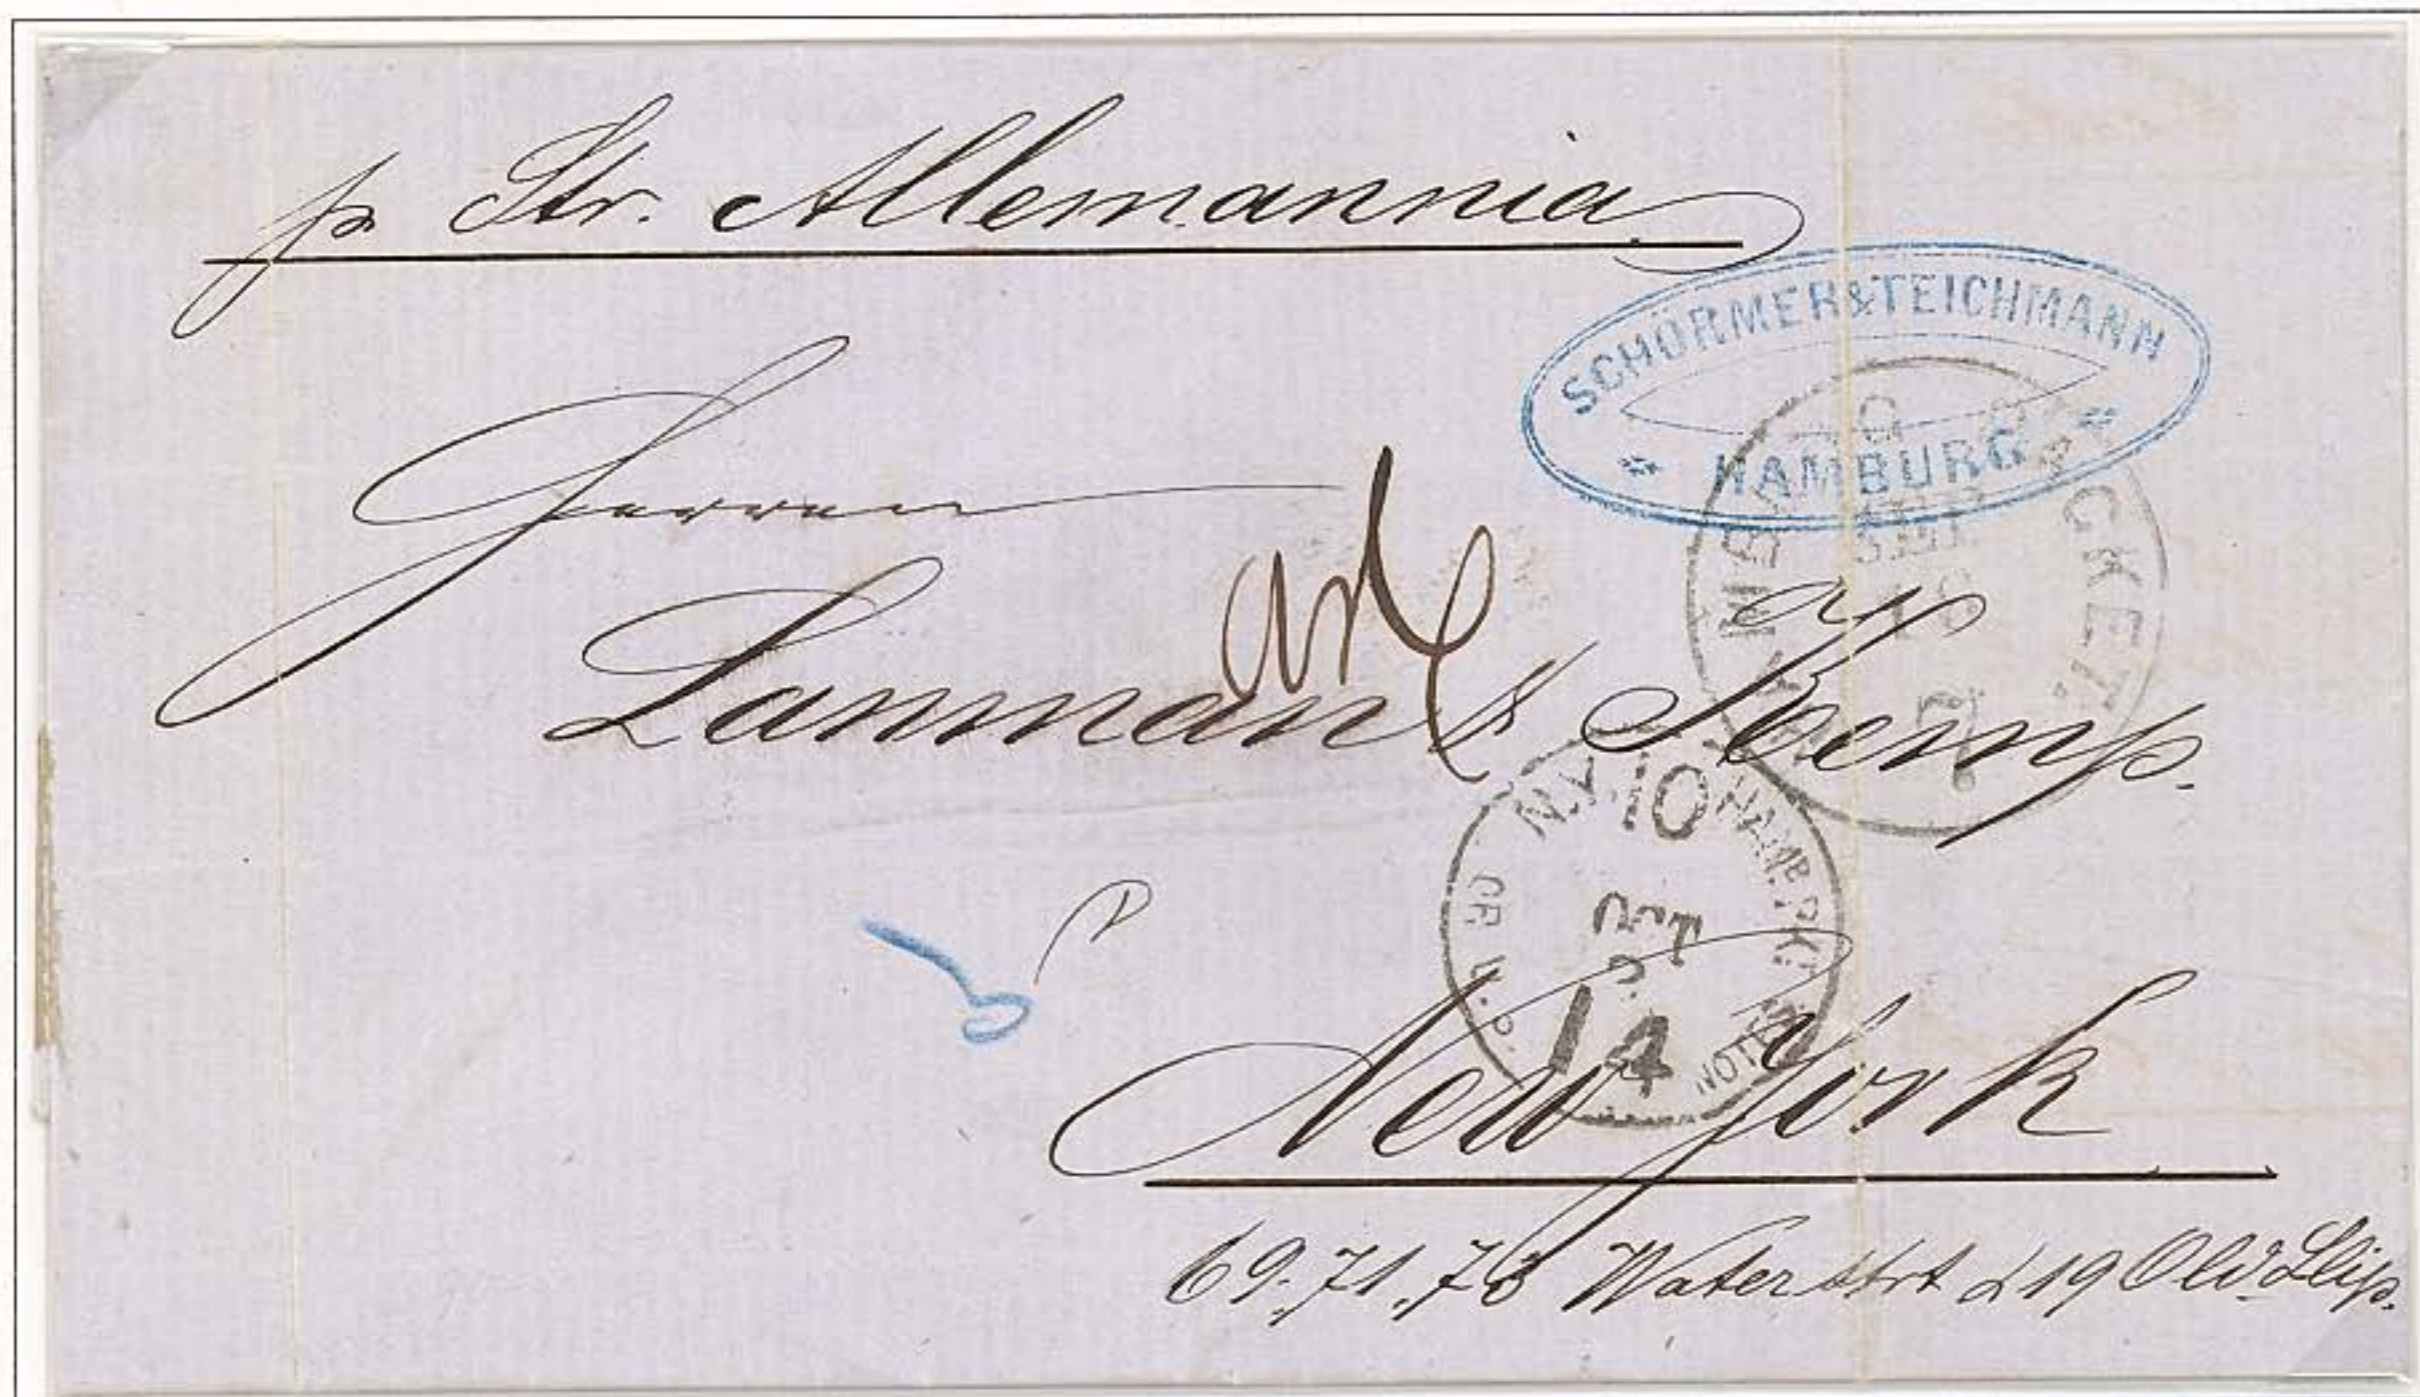 pr Str. Allemannia
SCHÖRMER & TEICHMANN
* HAMBURG *
Herren
Lanman & Kemp.
N.Y. 10 HAMB. PKT.
OR U.S. NOTES
DEC
14
New York
69. 71. 73 Water Strt & 19 Old Slip.